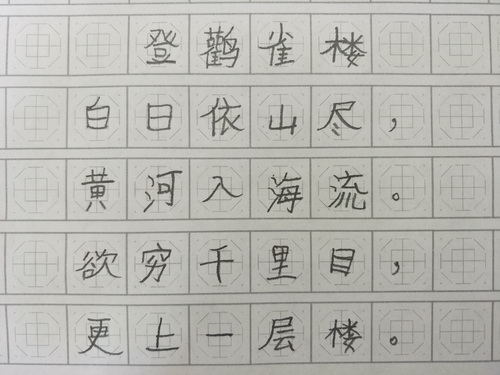 登鹳雀楼
白日依山尽,
黄河入海流。
欲穷千里目,
更上一层楼。